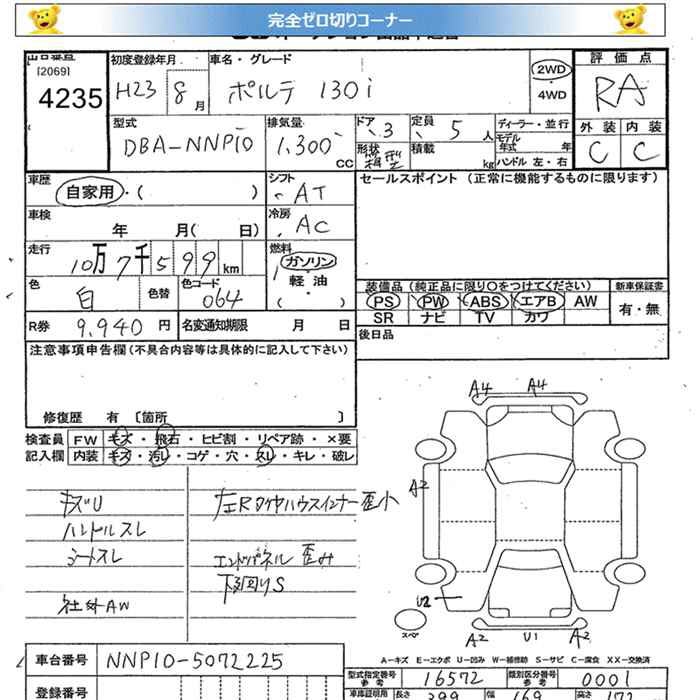 完全ゼロ切りコーナー
出品番号
[2069]
4235
初度登録年月
H23 8月
車名・グレード
ポルテ 130i
2WD
・4WD
評価点
RA
外装 内装
C C
型式
DBA-NNP10
排気量
1,300 CC
ドア
3
定員
5人
形状
箱型
積載
kg
ディーラー・並行
モデル年式 年
ハンドル 左・右
車歴
自家用・( )
シフト
AT
セールスポイント (正常に機能するものに限ります)
車検
年 月( 日)
冷房
AC
走行
10万7千599km
燃料
ガソリン
軽油
( )
色
白
色替
色コード
064
装備品(純正品に限り○をつけてください)
PS PW ABS エアB AW
SR ナビ TV カワ
新車保証書
有・無
R券 9,940円
名変通知期限 月 日
後日品
注意事項申告欄(不具合内容等は具体的に記入して下さい)
修復歴 有 〔箇所 〕
検査員 FW キズ・飛石・ヒビ割・リペア跡・×要
記入欄 内装 キズ・汚レ・コゲ・穴・スレ・キレ・破レ
キズU
ハンドルスレ
シートスレ
社外AW
左Rタイヤハウスインナー歪小
エンドパネル歪み
下回りS
A4 A4
A2
U2
スペア
A2 U1 A2
A-キズ E-エクボ U-凹み W-補修跡 S-サビ C-腐食 XX-交換済
車台番号 NNP10-5072225
登録番号
型式指定番号 参考 16572
類別区分番号 参考 0001
車庫証明用 長さ 399 幅 169 高さ 171